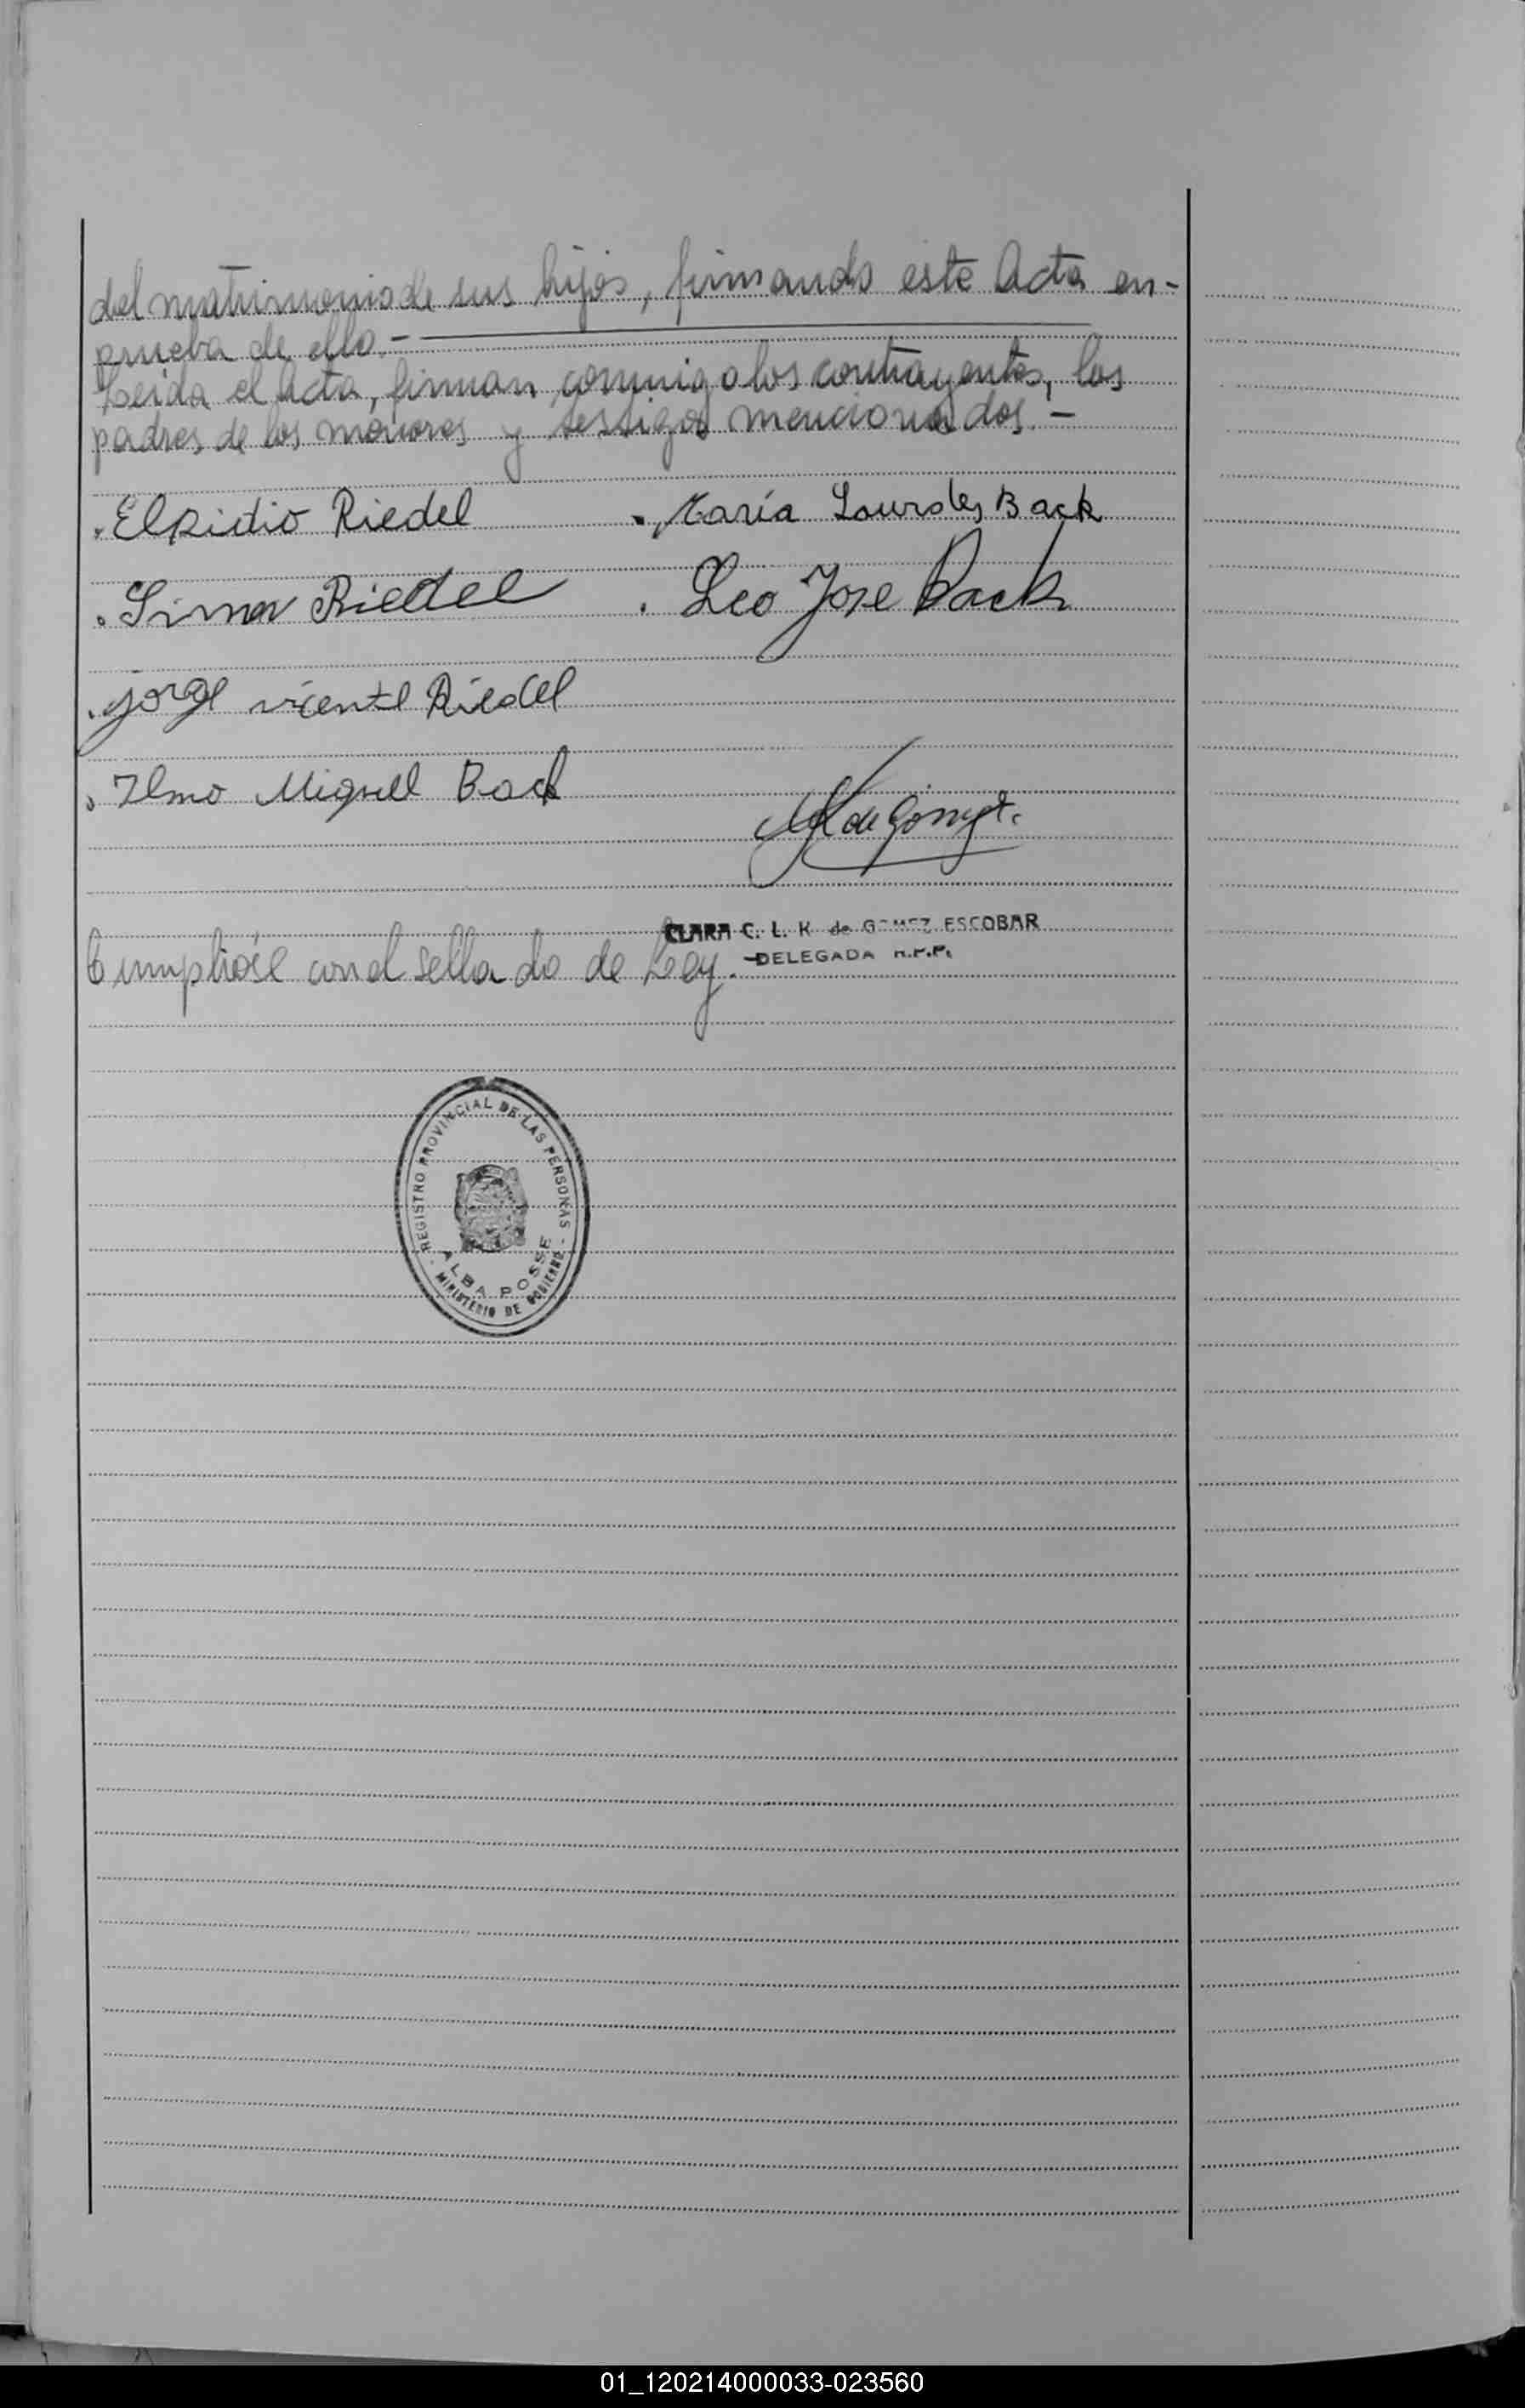 del matrimonio de sus hijos, firmando este Acta en-
prueba de ello.-
Leida el Acta, firman conmigo los contrayentes, los
padres de los menores y testigos mencionados.-
Elpidio Riedel . María Lourdes Back
Riedel . Leo Jose Back
Jorge vicente Riedel
Ilmo Miguel Back
de Gómez E.
CLARA C. L. K de GOMEZ ESCOBAR
-DELEGADA R.P.P.
Cumplióse con el sellado de Ley.
REGISTRO PROVINCIAL DE LAS PERSONAS -
ALBA POSSE
MINISTERIO DE GOBIERNO
01_120214000033-023560